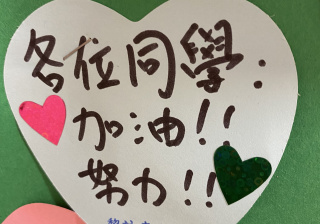 各位同學：
加油！！
努力！！